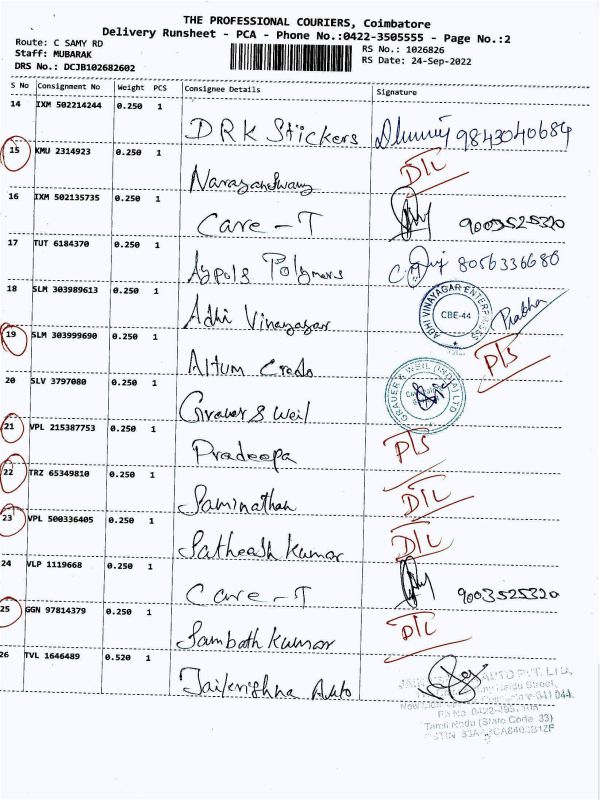 THE PROFESSIONAL COURIERS, Coimbatore
Delivery Runsheet - PCA - Phone No.:0422-3505555 - Page No.:2
Route: C SAMY RD
Staff: MUBARAK
DRS No.: DCJB102682602
RS No.: 1026826
RS Date: 24-Sep-2022
S No Consignment No Weight PCS Consignee Details Signature
14 IXM 502214244 0.250 1 DRK Stickers 9843040684
15 KMU 2314923 0.250 1 Narayanswamy D/L
16 IXM 502135735 0.250 1 Care - T 9003525320
17 TUT 6184370 0.250 1 Polymers 8056336680
18 SLM 303989613 0.250 1 Adhi Vinayagar Prabhu
ADHI VINAYAGAR ENTERPRISES
CBE-44
19 SLM 303999690 0.250 1 Altum Credo D/S
20 SLV 3797080 0.250 1 Grauer & Weil
GRAUER & WEIL (INDIA) LTD
21 VPL 215387753 0.250 1 Pradeepa D/S
22 TRZ 65349810 0.250 1 Saminathan D/L
23 VPL 500336405 0.250 1 Satheash Kumar D/L
24 VLP 1119668 0.250 1 Care - T 9003525320
25 GGN 97814379 0.250 1 Sambath Kumar D/L
26 TVL 1646489 0.520 1 Jaikrishna Auto
AUTO PVT. LTD,
Naidu Street,
641 044.
Tamil Nadu (State Code 33)